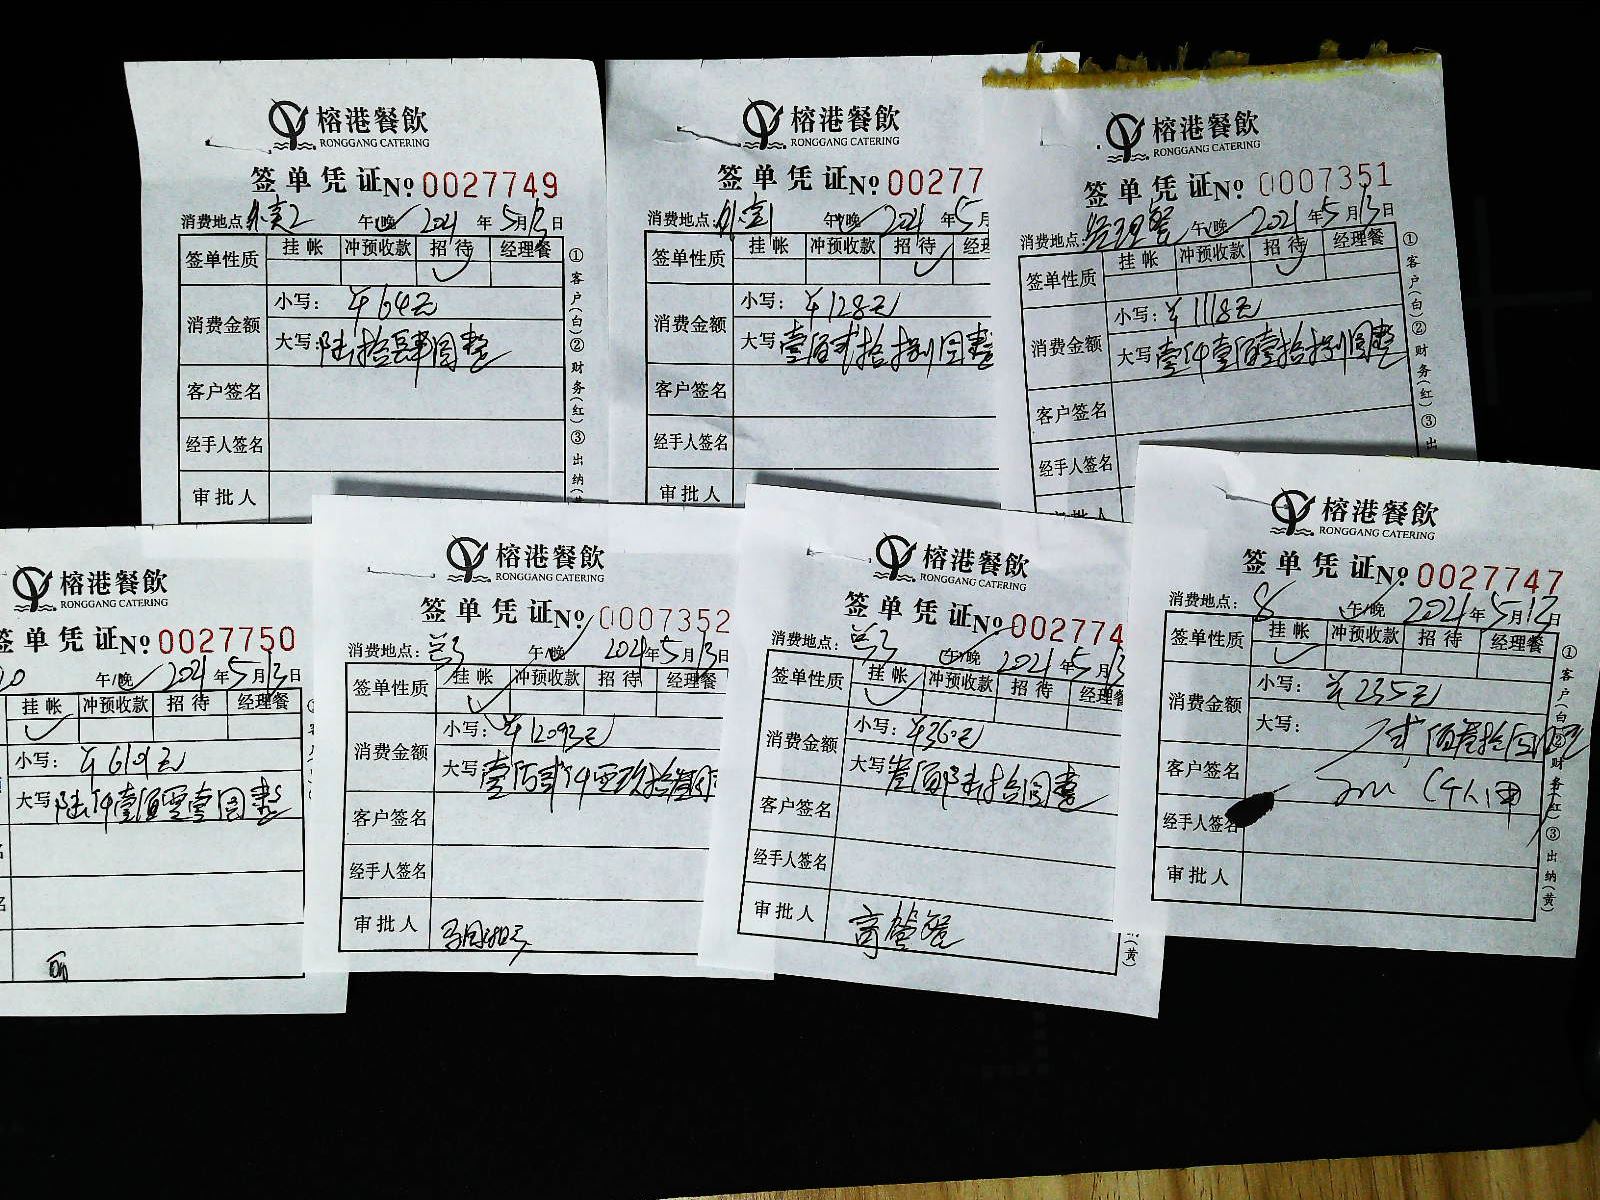 榕港餐飲
RONGGANG CATERING
签单凭证 No 0027749
消费地点: 午/晚 2021年5月12日
签单性质 挂帐 冲预收款 招待 经理餐
消费金额 小写: ¥64元
大写: 陆拾肆圆整
客户签名
经手人签名
审批人
①客户(白)②财务(红)③出纳(黄
榕港餐飲
RONGGANG CATERING
签单凭证 No 00277
消费地点: 午/晚 2021年5月
签单性质 挂帐 冲预收款 招待 经
消费金额 小写: ¥128元
大写: 壹佰贰拾捌圆整
客户签名
经手人签名
审批人
榕港餐飲
RONGGANG CATERING
签单凭证 No 0007351
消费地点: 经理餐 午/晚 2021年5月13日
签单性质 挂帐 冲预收款 招待 经理餐
消费金额 小写: ¥1118元
大写: 壹仟壹佰壹拾捌圆整
客户签名
经手人签名
批人
①客户(白)②财务(红)③出
榕港餐飲
RONGGANG CATERING
签单凭证 No 0027750
午/晚 2021年5月13日
挂帐 冲预收款 招待 经理餐
小写: ¥6101元
大写: 陆仟壹佰零壹圆整
榕港餐飲
RONGGANG CATERING
签单凭证 No 0007352
消费地点: 午/晚 2021年5月13日
签单性质 挂帐 冲预收款 招待 经理餐
消费金额 小写: ¥12093元
大写: 壹万贰仟零玖拾叁圆
客户签名
经手人签名
审批人
榕港餐飲
RONGGANG CATERING
签单凭证 No 002774
消费地点: 午/晚 2021年5月13
签单性质 挂帐 冲预收款 招待 经理餐
消费金额 小写: ¥360元
大写: 佰陆拾圆整
客户签名
经手人签名
审批人
(黄)
榕港餐飲
RONGGANG CATERING
签单凭证 No 0027747
消费地点: 8 午/晚 2021年5月12日
签单性质 挂帐 冲预收款 招待 经理餐
消费金额 小写: ¥235元
大写: 贰佰叁拾
客户签名
经手人签名
审批人
①客户(白)②财务(红)③出纳(黄)